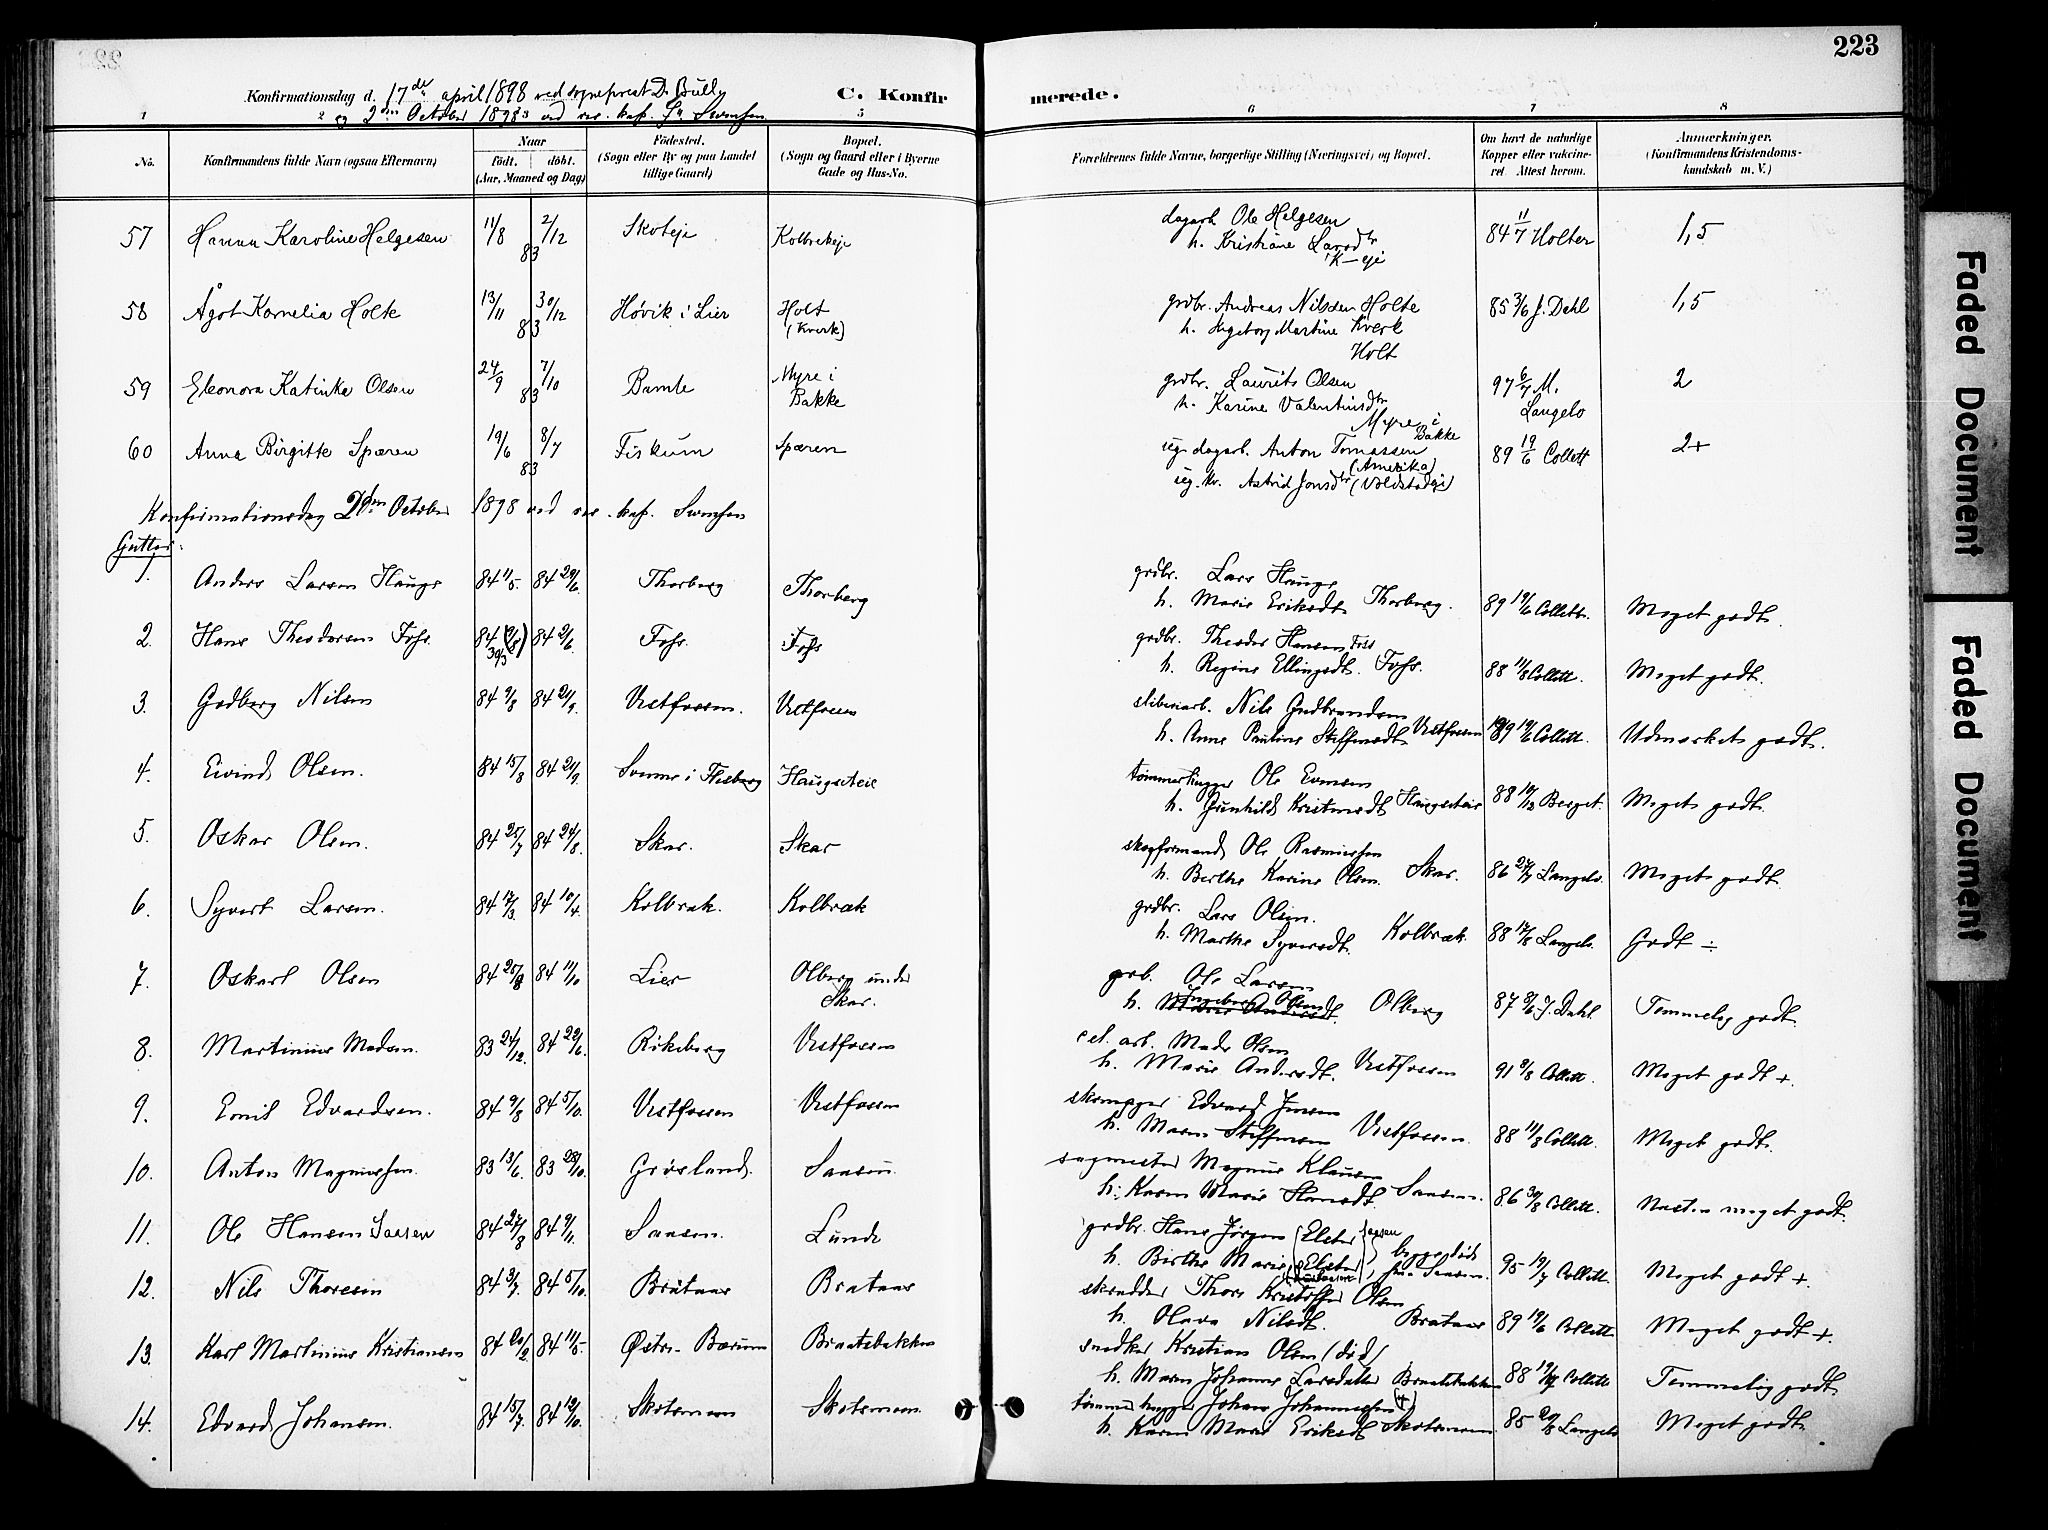 223
Konfirmationsdag d. 17de april 1898 ved sogneprest D. Bull
C. Konfirmerede.
og 2den October 1898 ved res. kap. Svensen
1 2 5 6 7 8
No. Konfirmandens fulde Navn (ogsaa Efternavn) Naar født. døbt. (Aar, Maaned og Dag) Fødested. (Sogn eller By og paa Landet tillige Gaard) Bopæl. (Sogn og Gaard eller i Byerne Gade og Hus-No. Forældrenes fulde Navne, borgerlige Stilling (Næringsvei) og Bopæl. Om havt de naturlige Kopper eller vaccineret. Attest herom. Anmærkninger. (Konfirmandens Kristendomskundskab m. V.)
57 Hanna Karoline Helgesen 11/8 2/12 83 Skoteje Kolbrekeje dagarb. Ole Helgesen
h. Kristiane Larsdtr K-eje 84 11/7 Holter 1,5
58 Ågot Kornelia Holte 13/11 30/12 83 Høvik i Lier Holt (Kverk) grdbr. Andreas Nilssen Holte
h. Ingeborg Martine Kverk Holt 85 3/6 J. Dahl 1,5
59 Eleonora Katinka Olsen 24/9 7/10 83 Bamle Myre i Bakke grdbr. Laurits Olsen
h. Karine Valentinsdtr Myre i Bakke 97 6/7 M. Langelo 2
60 Anna Birgitte Spæren 19/6 8/7 83 Fiskum Spæren ug. dagarb. Anton Tomassen (Amerika)
ug. kv. Astrid Jonsdtr (Voldstadeje) 89 19/6 Collett 2+
Konfirmationsdag 2den October 1898 ved res. kap. Svensen
Gutter:
1. Anders Larsen Hauge 84 11/5. 84 29/6. Thorberg Thorberg grdbr. Lars Hauge
h. Marie Eriksdt. Thorberg. 89 19/6 Collett. Meget godt.
2. Hans Theodorsen Foss. 84 (2/8) 30/3 84 2/6. Foss. Foss grdbr. Theodor Hansen Foss
h. Regine Ellingsdt. Foss. 88 11/8 Collett. Meget godt.
3. Godberg Nilsen 84 9/8 84 21/9. Vestfossen. Vestfossen sliberiarb. Nils Gudbrandsen
h. Anne Pauline Steffensdt. Vestfossen 89 19/6 Collett. Udmerket godt.
4. Eivind Olsen. 84 15/8 84 21/9. Svenne i Flesberg Haugseteie tømmerhugger Ole Evensen
h. Gunhild Kristensdt. Haugseteie 88 19/12 Berget. Meget godt.
5. Oskar Olsen. 84 25/7 84 24/8. Skar. Skar skogformand Ole Rasmussen
h. Berthe Karine Olsen. Skar. 86 27/7 Langelo. Meget godt.
6. Syvert Larsen. 84 17/3. 84 10/4. Kolbræk. Kolbræk grdbr. Lars Olsen.
h. Marthe Syversdt. Kolbræk. 88 17/8 Langelo. Godt ÷
7. Oskarl Olsen 84 25/8 84 11/10 Lier Olberg under Skar. grb. Ole Larsen
h. Ingeborg Olsen Olberg 87 9/6 J. Dahl. Temmelig godt.
8. Martinius Madsen. 83 24/12. 84 29/6. Rikeberg Vestfossen cel. arb. Mads Olsen
h. Marie Andersdt. Vestfossen 91 9/8 Collett. Meget godt +.
9. Emil Edvardsen. 84 9/8 84 5/10. Vestfossen Vestfossen skomager Edvard Jensen
h. Maren Steffensen Vestfossen. 88 11/8 Collett. Meget godt.
10. Anton Magnussen. 83 13/6. 83 28/10. Grøsland. Saasen. sagmester Magnus Klausen
h. Karen Marie Hansdt. Saasen. 86 30/8 Collett. Næsten meget godt.
11. Ole Hansen Saasen 84 27/8 84 9/11. Saasen. Lunde grdbr. Hans Jørgen (Elster)
h. Birthe Marie (Elster) begge døde fra Saasen. 95 19/7 Collett. Meget godt +.
12. Nils Thoresen 84 3/7. 84 5/10. Bråtaas Brataas skrædder Thore Kristoffer Olsen
h. Olava Nilsdt. Brataas 89 19/6 Collett Meget godt +.
13. Karl Martinius Kristiansen 84 20/2. 84 11/5. Østre Bærum Braatabakken snedker Kristian Olsen (død)
h. Maren Johanne Larsdatter Braatabakken 88 19/8 Collett Temmelig godt
14. Edvard Johansen. 84 15/7. 84 19/10. Skotsmoen Skotsmoen. tømmerhugger Johan Johannessen (+)
h. Karen Marie Eriksdt Skotsmoen. 85 20/8 Langelo Meget godt.
Faded Document
Faded Document